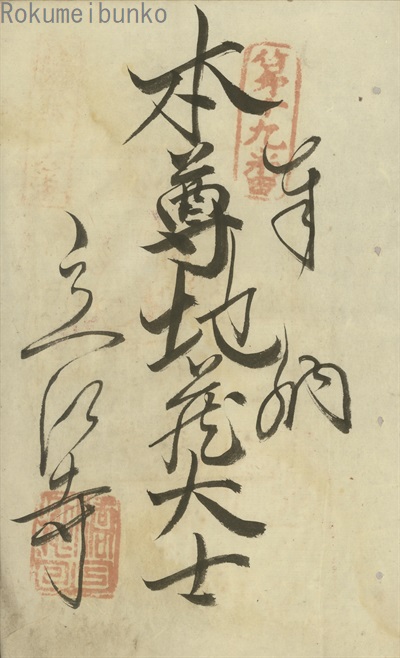 Rokumeibunko
奉納
第十九番
本尊地蔵大士
立江寺